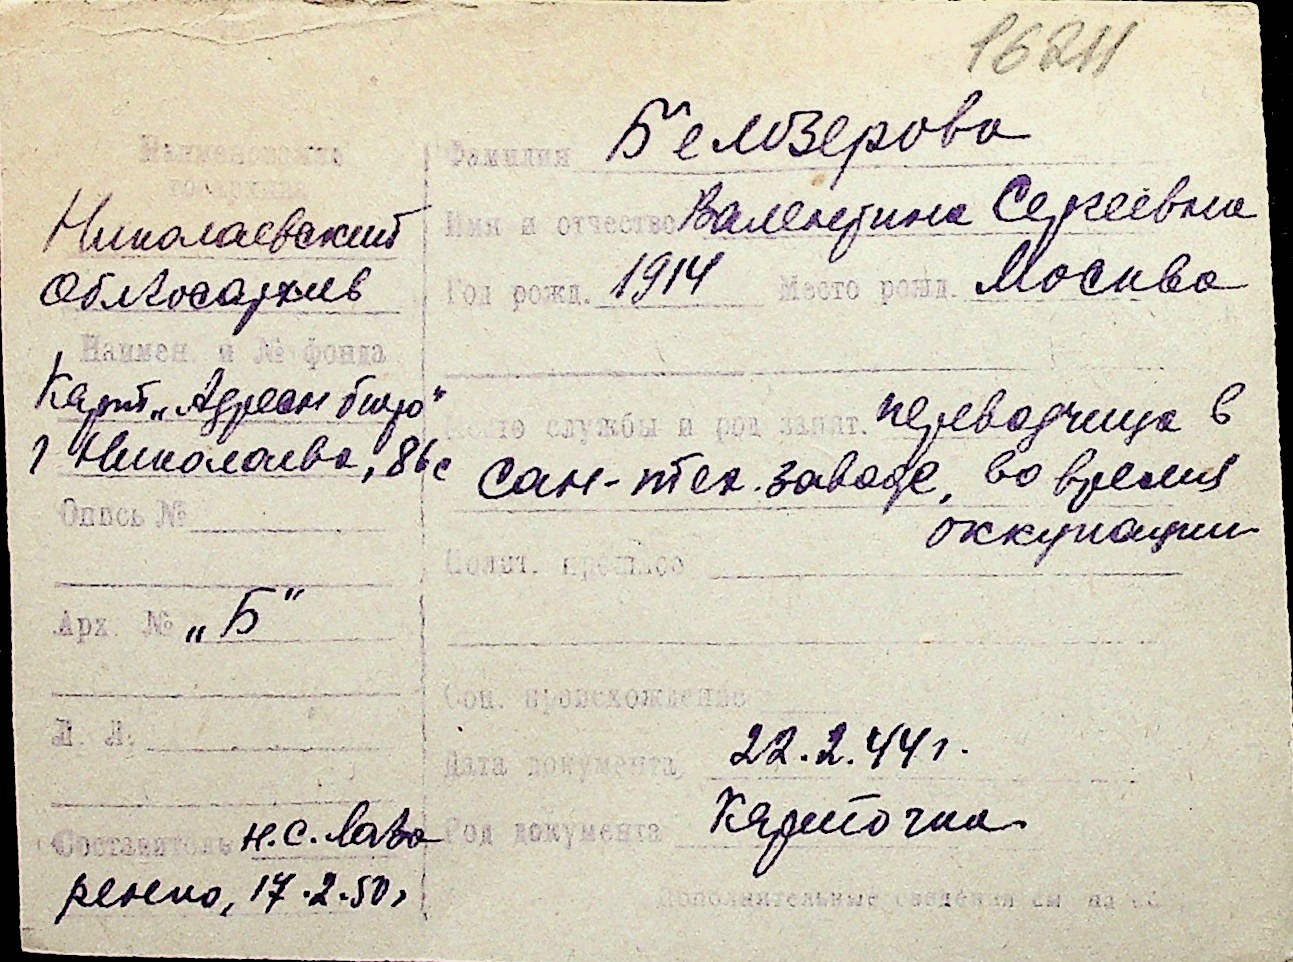 16211
Наименование
госархива
Николаевский
Облгосархив
Наимен. и № фонда
Карт. „Адресн бюро"
г Николаева, 86 с
Опись №
Арх. № „Б"
Л. Л.
Составитель Н.С. Лаза
ренко, 17.2.50 г
Фамилия Белозерова
Имя и отчество Валентина Сергеевна
Год рожд. 1914 Место рожд. Москва
Место службы и род занят. переводчица в
сан-тех. заводе, во время
оккупации
Полит. прошлое
Соц. происхождение
Дата документа 22.2.44 г.
Род документа Карточка
Дополнительные сведения см. на об.